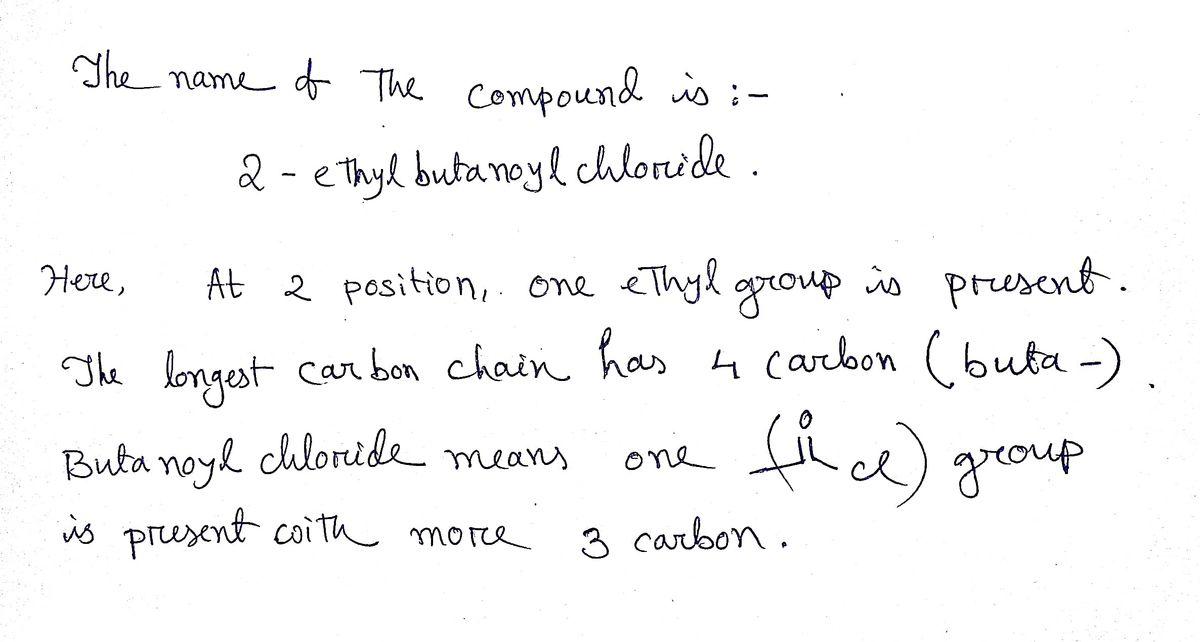 The name of The compound is :-
2 - ethyl butanoyl chloride.
Here, At 2 position, one ethyl group is present.
The longest carbon chain has 4 carbon (buta-).
Butanoyl chloride means one (O Cl) group
is present with more 3 carbon.